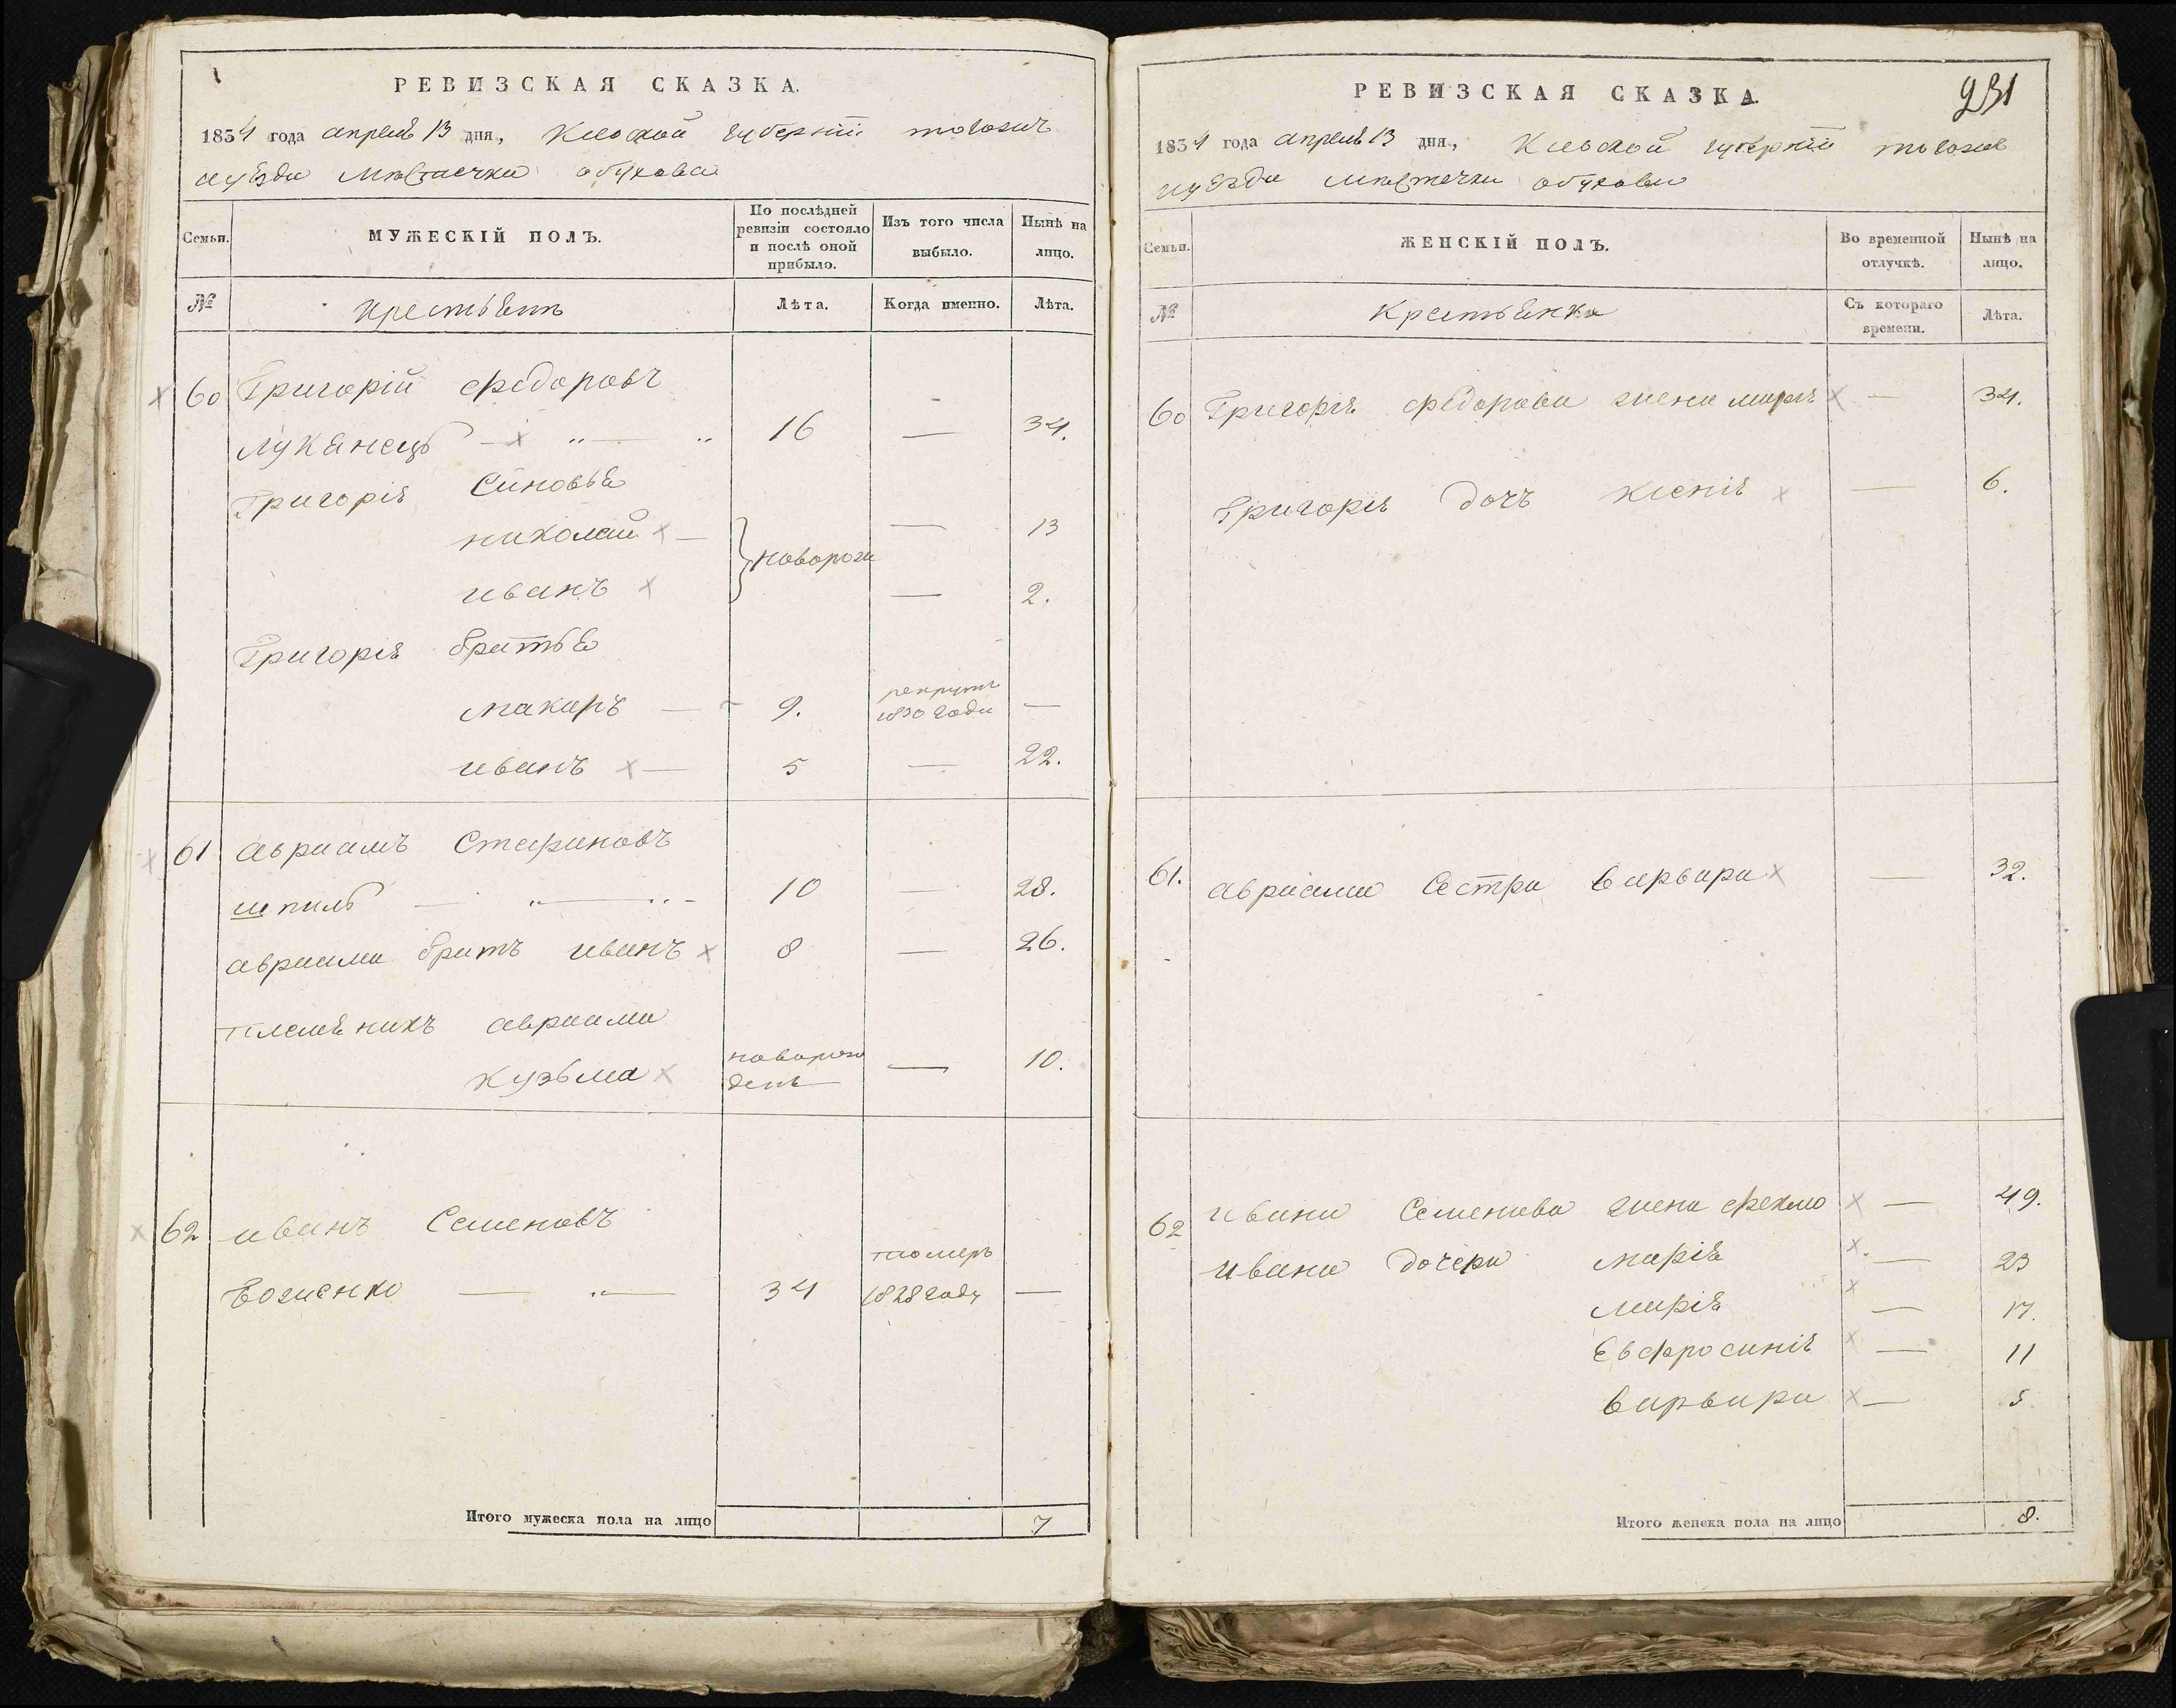 РЕВИЗСКАЯ СКАЗКА.
1834 года апреля 13 дня, Киевской губернии
уезда местечка обухова
Семьи. МУЖЕСКІЙ ПОЛЪ. По послѣдней ревизіи состояло и послѣ оной прибыло. Изъ того числа выбыло. Нынѣ на лицо.
№ Лѣта. Когда именно. Лѣта.
60 Григорій федоровъ
луканецъ 16 — 34.
Григорія синовья
николай — 13
новорож
иванъ — 2.
Григорія братья
макаръ — 9. рекрутъ 1830 года —
иванъ — 5 — 22.
61 авраамъ Стефановъ
шпиль — 10 — 28.
авраама братъ иванъ 8 — 26.
племяникъ авраама
кузьма новорож денъ — 10.
62 иванъ Семеновъ
Боженко — 34 померъ 1828 году —
Итого мужеска пола на лицо 7
231
РЕВИЗСКАЯ СКАЗКА.
1834 года апреля 13 дня, Киевской губернии
уезда местечка обухова
Семьи. ЖЕНСКІЙ ПОЛЪ. Во временной отлучкѣ. Нынѣ на лицо.
№ Крестьянка Съ котораго времени. Лѣта.
60 Григорія федорова жена марія — 34.
Григорія дочъ ксенія — 6.
61. авраама сестра варвара — 32.
62 ивана Семенова жена — 49.
ивана дочери марія — 23
марія — 17.
Евфросинія — 11
варвара — 5
Итого женска пола на лицо 8.